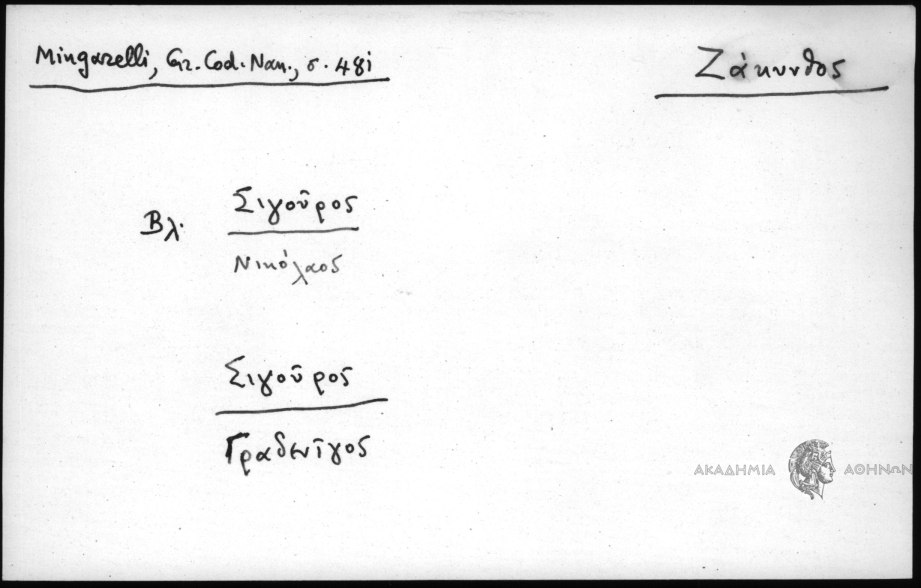 Mingarelli, Gr. Cod. Nan., σ. 481
Ζάκυνθος
Βλ. Σιγοῦρος
Νικόλαος
Σιγοῦρος
Γραδενῖγος
ΑΚΑΔΗΜΙΑ ΑΘΗΝΩΝ